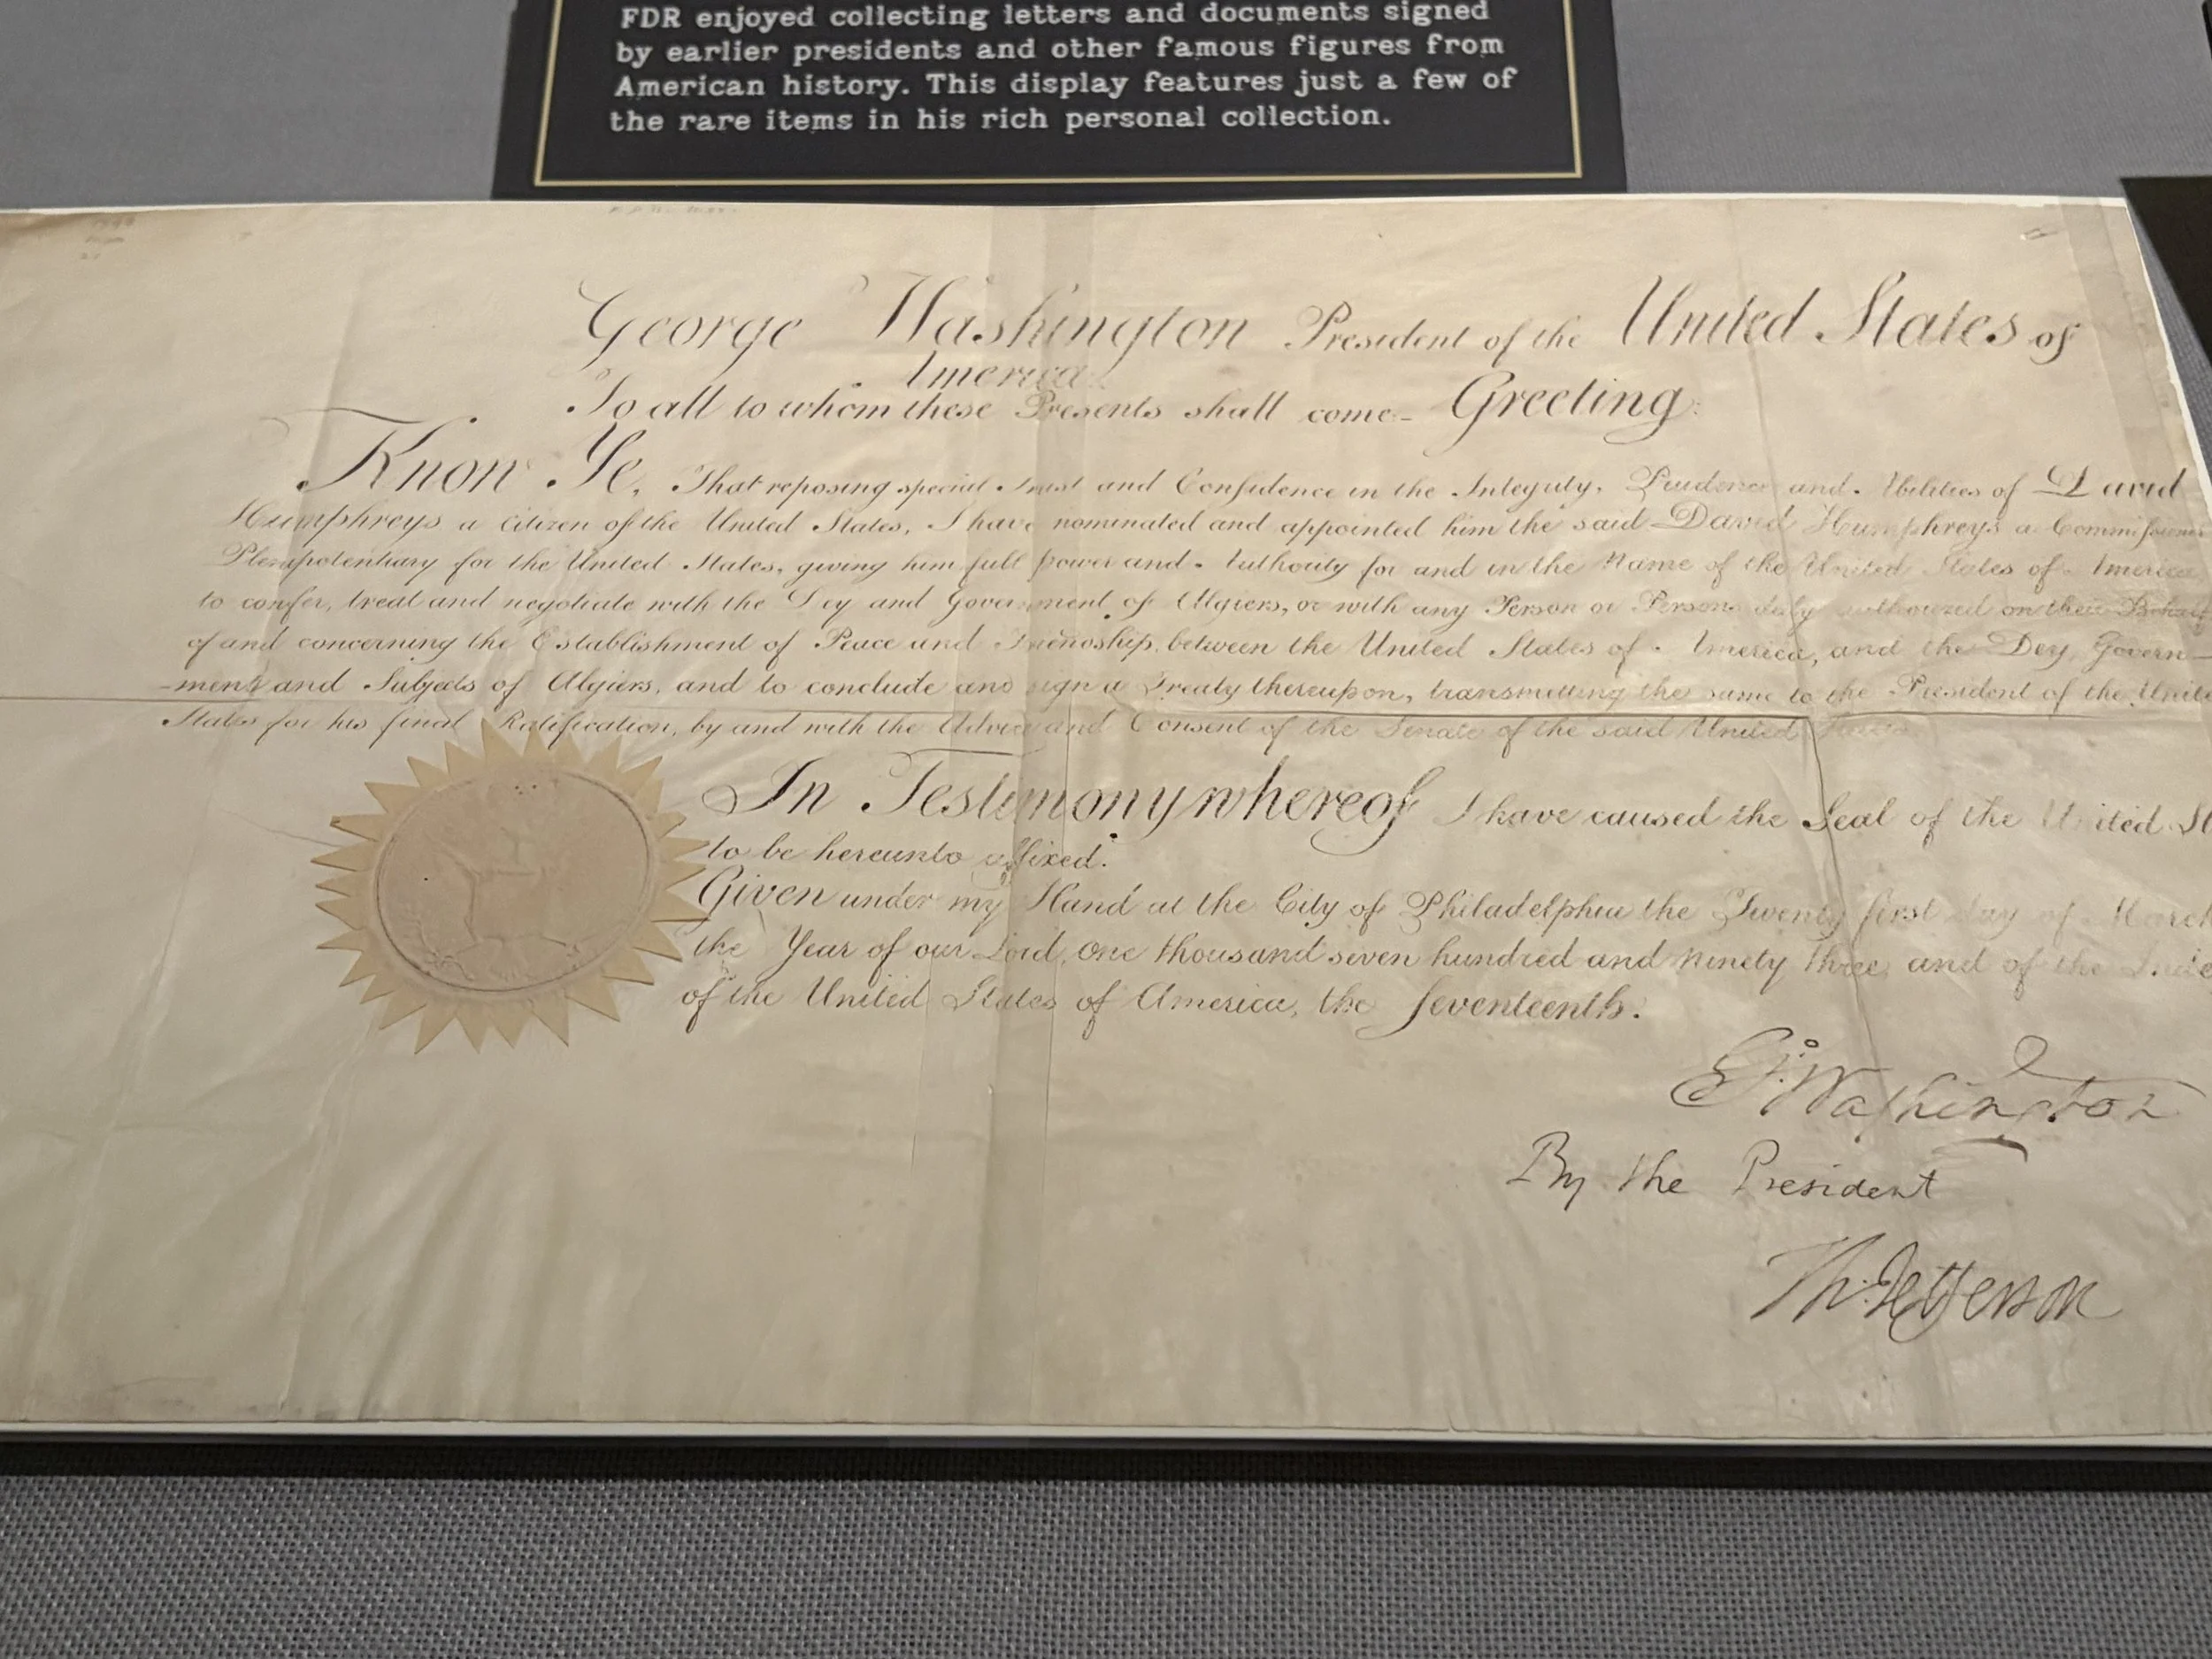 FDR enjoyed collecting letters and documents signed
by earlier presidents and other famous figures from
American history. This display features just a few of
the rare items in his rich personal collection.
George Washington President of the United States of
America
To all to whom these Presents shall come- Greeting:
Know Ye, That reposing special Trust and Confidence in the Integrity, Prudence and Abilities of David
Humphreys a Citizen of the United States, I have nominated and appointed him the said David Humphreys a Commissioner
Plenipotentiary for the United States, giving him full power and Authority for and in the Name of the United States of America
to confer, treat and negotiate with the Dey and Government of Algiers, or with any Person or Persons duly authorized on their Behalf
of and concerning the Establishment of Peace and Friendship, between the United States of America, and the Dey, Govern-
-ment and Subjects of Algiers, and to conclude and sign a Treaty thereupon, transmitting the same to the President of the United
States for his final Ratification, by and with the Advice and Consent of the Senate of the said United States.
In Testimony whereof I have caused the Seal of the United St
to be hereunto affixed.
Given under my Hand at the City of Philadelphia the Twenty first day of March
the Year of our Lord, one thousand seven hundred and ninety three, and of the Inde
of the United States of America, the Seventeenth.
G:Washington
By the President
Th:Jefferson